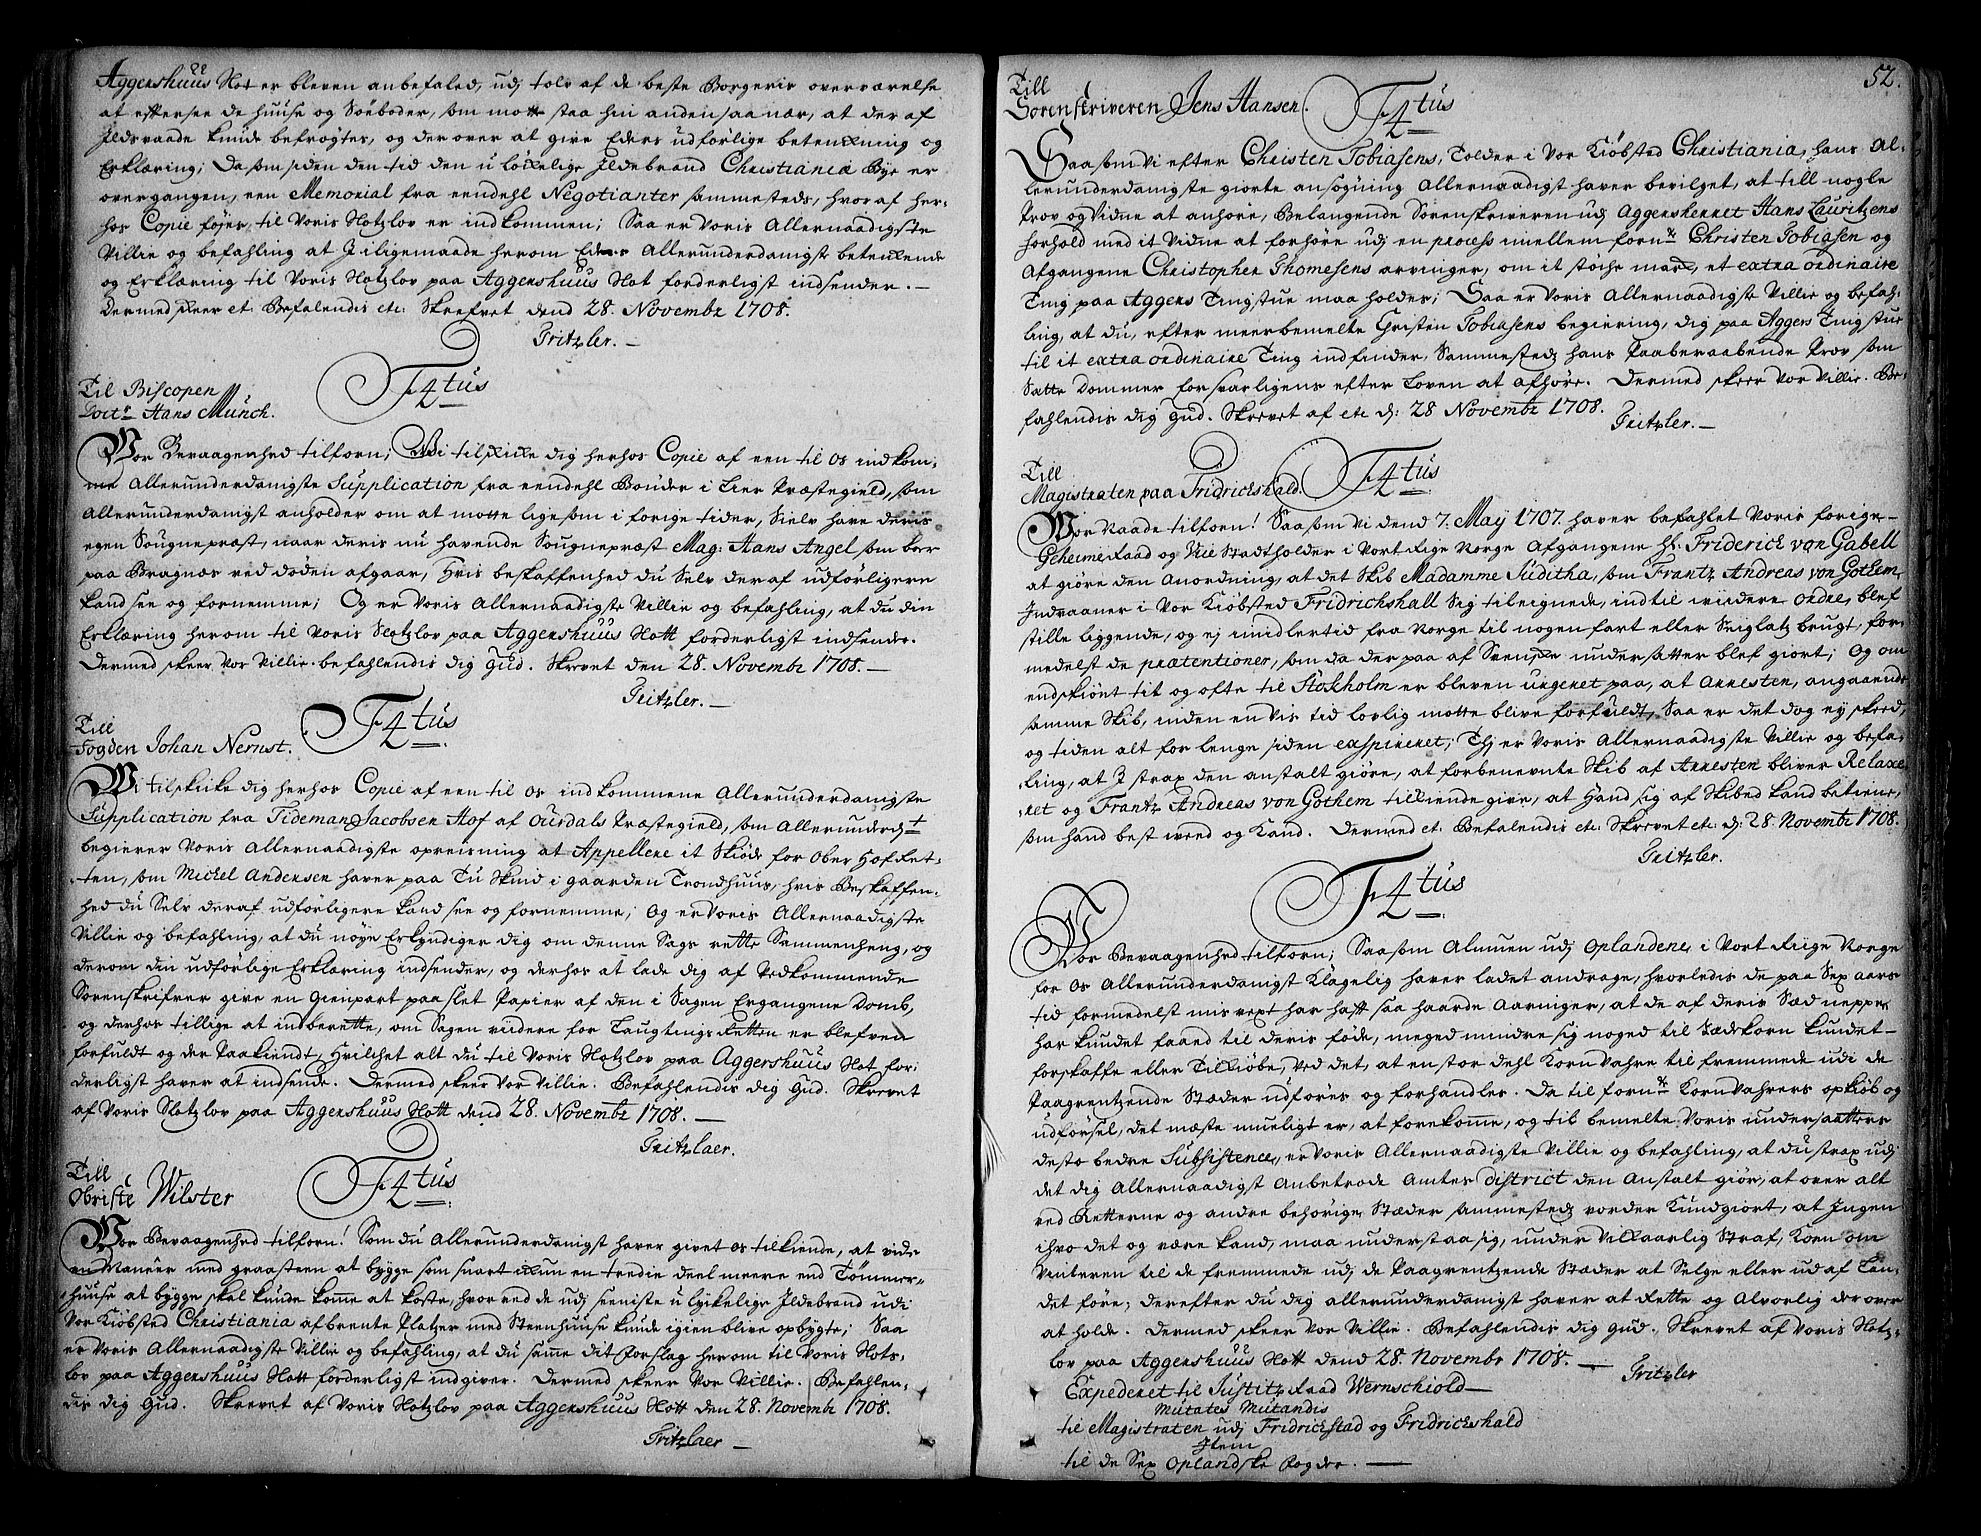 Aggershuus Slot er bleven anbefaled, udj tolv af de beste Borgeris overværelse
at effersee de huuse og Söeboder, som motte staa hin anden saa nær, at der af
Jldsvaade kunde befrøgtes, og der over at give Eders udforlige betenkning og
Erklæring; Da som siden den tid den u lökelige Jldebrand Christiania Bye er
overgangen, een Memorial fra eendehl Negotianter sammesteds, hvor af her-
hos Copie föjes, til Voris Slotzlov er indkommen; Saa er Voris Allernaadigste
Villie og befahling at J iligemaade herom Eders Allerunderdanigst betenkende
og Erklæring til Voris Slotzlov paa Aggershuus Slot forderligst indsender. —
Dermed skeer et: Befalendis etc: Skrefvet dend 28. Novembr 1708.
Fritzler. —
Til Biscopen
Doctr Hans Munch.
F4tus
Vor Bevaagenhed tilforn; Wi tilskicke dig herhos Copie af een til os indkom-
me Allerunderdanigste Supplication fra eendehl Bönder i Lier Præstegield, som
Allerunderdanigst anholder om at motte ligesom i forige tider, Sielv have deris
egen Sougnepræst, naar deris nu havende Sougnepræst Mag: Hans Angel som boer
paa Bragnæs ved döden afgaar, Hvis beskaffenhed du Selv deraf udförligere
kand see og fornemme; Og er Voris Allernaadigste Villie og befahling, at du din
Erklæring herom til Voris Slotzlov paa Aggershuus Slott forderligst indsender.
Dermed skeer Vor Villie. befahlendis dig Gud. Skrevet den 28. Novembr 1708. —
Fritzler. —
Till
Fogden Johan Nernst.
F4tus
Wi tilskicke dig herhos Copie af een til os indkommene Allerunderdanigste
Supplication fra Tideman Jacobsen Hof af Ourdals Præstegield, som Allerunderdt
begierer Voris Allernaadigste opreisning at Appellere it Skiöde for Ober Hof Ret-
ten, som Michel Andersen haver paa Tu Skind i gaarden Trondhuus, hvis Beskaffen-
hed du Selv deraf udförligere kand see og fornemme; Og er Voris Allernaadigste
Villie og befahling, at du nöye Erkyndiger dig om denne Sags rette Sammenheng, og
derom din udförlige Erklæring indsender, og derhos at lade dig af Vedkommende
Sorenskrifver give en Gienpart paa slet Papier af den i Sagen Ergangene Domb,
og derhos tillige at indberette, om Sagen viidere for Laugtings Retten er blefven
forfuldt og der Paakiendt, Hvilchet alt du til Voris Slotzlov paa Aggershuus Slot for-
derligst haver at indsende. Dermed skeer Vor Villie. Befahlendis dig Gud. Skrevet
af Voris Slotzlov paa Aggershuus Slott dend 28. Novembr 1708. —
Fritzlaer.
Till
Obriste Wilster
F4tus
Vor Bevaagenhed tilforn! Som du Allerunderdanigst haver givet os tilkiende, at vide
en Maneer med graasteen at bygge som snart ikun en tredie deel meere end Tömmer-
huuse at bygge skal kunde komme at koste, hvorved de udj seeniste ulykelige Jldebrand udi
Vor Kiöbsted Christiania afbrente Platzer med Steenhuuse kunde igien blive opbygte; Saa
er Voris Allernaadigste Villie og befahling, at du samme dit forslag herom til Voris Slots-
lov paa Aggershuus Slott forderligst indgiver. Dermed skeer Vor Villie. Befahlen-
dis dig Gud. Skrevet af Voris Slotzlov paa Aggershuus Slott den 28. Novembr 1708.
Fritzlaer —
52.
Till
Sorenskriveren Jens Hansen.
F4tus
Saasom Vi efter Christen Tobiasens, Tolder i Vor Kiöbsted Christiania, hans Al-
lerunderdanigste giorte ansögning Allernaadigst haver bevilget, at till nogle
Prov og Vidne at anhöre, Belangende Sorenskriveren udj Aggersherret Hans Lauritzens
forhold med it Vidne at forhöre udj en process imellem fornte Christen Tobiasen og
Afgangene Christopher Thomesens arvinger, om it större mark, et extra ordinaire
Ting paa Aggers Tingstue maa holdes; Saa er Voris Allernaadigste Villie og befah-
ling, at du, efter meerbemelte Christen Tobiasens begiering, dig paa Aggers Tingstue
til it extra ordinaire Ting indfinder, Sammesteds hans Paaberaabende Prov som
Satte Dommer forsvarligens efter Loven at afhöre. Dermed skeer Vor Villie. Be-
fahlendis dig Gud. Skrevet af etc d: 28 Novembr 1708.
Fritzler. —
Till
Magistraten paa Fridrichshald.
F4tus
Vor Naade tilforn! Saasom Vi dend 7. May 1707. haver befahlet Voris forige
Geheime Raad og Vice Stadtholder i Vort Rige Norge Afgangene Hr. Friderick von Gabell
at giöre den Anordning, at det Skib Madamme Juditha, som Frantz Andreas von Gothem,
Indvaaner i Vor Kiöbsted Fridrichshall Sig tileignede, indtil viidere ordre, blef
stille liggende, og ej imidlertid fra Norge til nogen fart eller Seiglatz brugt, for-
medelst de prætentioner, som da der paa af Svenske undersatter blef giort; Og om
endskiönt tit og ofte til Stokholm er bleven urgeret paa, at Arresten, angaaende
samme Skib, inden en vis tid lovlig motte blive forfuldt, Saa er det dog ej skeed,
og tiden alt for lenge siden exspireret; Thj er Voris Allernaadigste Villie og befa-
ling, at J strax den anstalt giöre, at forbenevnte Skib af Arresten bliver Relaxe-
ret og Frantz Andreas von Gothem tilkiende give, at Hand sig af Skibed kand betiene,
som hand best weed og Kand. Dermed et: Befalendis etc: Skrevet etc: d: 28 Novembr 1708.
Fritzler.
F4tus
Vor Bevaagenhed tilforn; Saasom Almuen udj Oplandene, i Vort Riige Norge
for Os Allerunderdanigst Klagelig haver ladet andrage, hvorledis de paa Sex aars
tid formedelst misvext har hafft saa haarde Aaringer, at de af deris Sæd neppe
har kundet faaed til deris föde, meged mindre sig noged til Sædekorn kundet
forskaffe eller Tilkiöbe, Ved det, at en stor dehl Korn Vahre til fremmede udi de
Paagrentzende Stæder udföres og forhandles. Da til fornte Korn Vahrers opkiöb og
udförsel, det mæste mueligt er, at forekomme, og til bemelte Voris undersaatters
desto bedre Subsistence, er Voris Allernaadigste Villie og befahling, at du strax udj
det dig Allernaadigst Anbetrode Amtes district den Anstalt giör, at over alt
ved Retterne og andre behörige Stæder sammesteds vorder Kundgiort, at Ingen
ihvo det og være kand, maa understaa sig, under Vilkaarlig Straf, Korn om
Vinteren til de fremmede udj de Paagrentzende Stæder at Selge eller ud af Lan-
det före; derefter du dig allerunderdanigst haver at Rette og Alvorlig der over
at holde. Dermed skeer Vor Villie. Befahlendis dig Gud. Skrevet af Voris Slotz-
lov paa Aggershuus Slott dend 28. Novembr 1708. —
Fritzler
Expederet til Justitz Raad Wernschiold —
Mutatis Mutandis
til Magistraten udj Fridrichstad og Fridrichshald
Item
til de Sex Oplandske Fogder. —